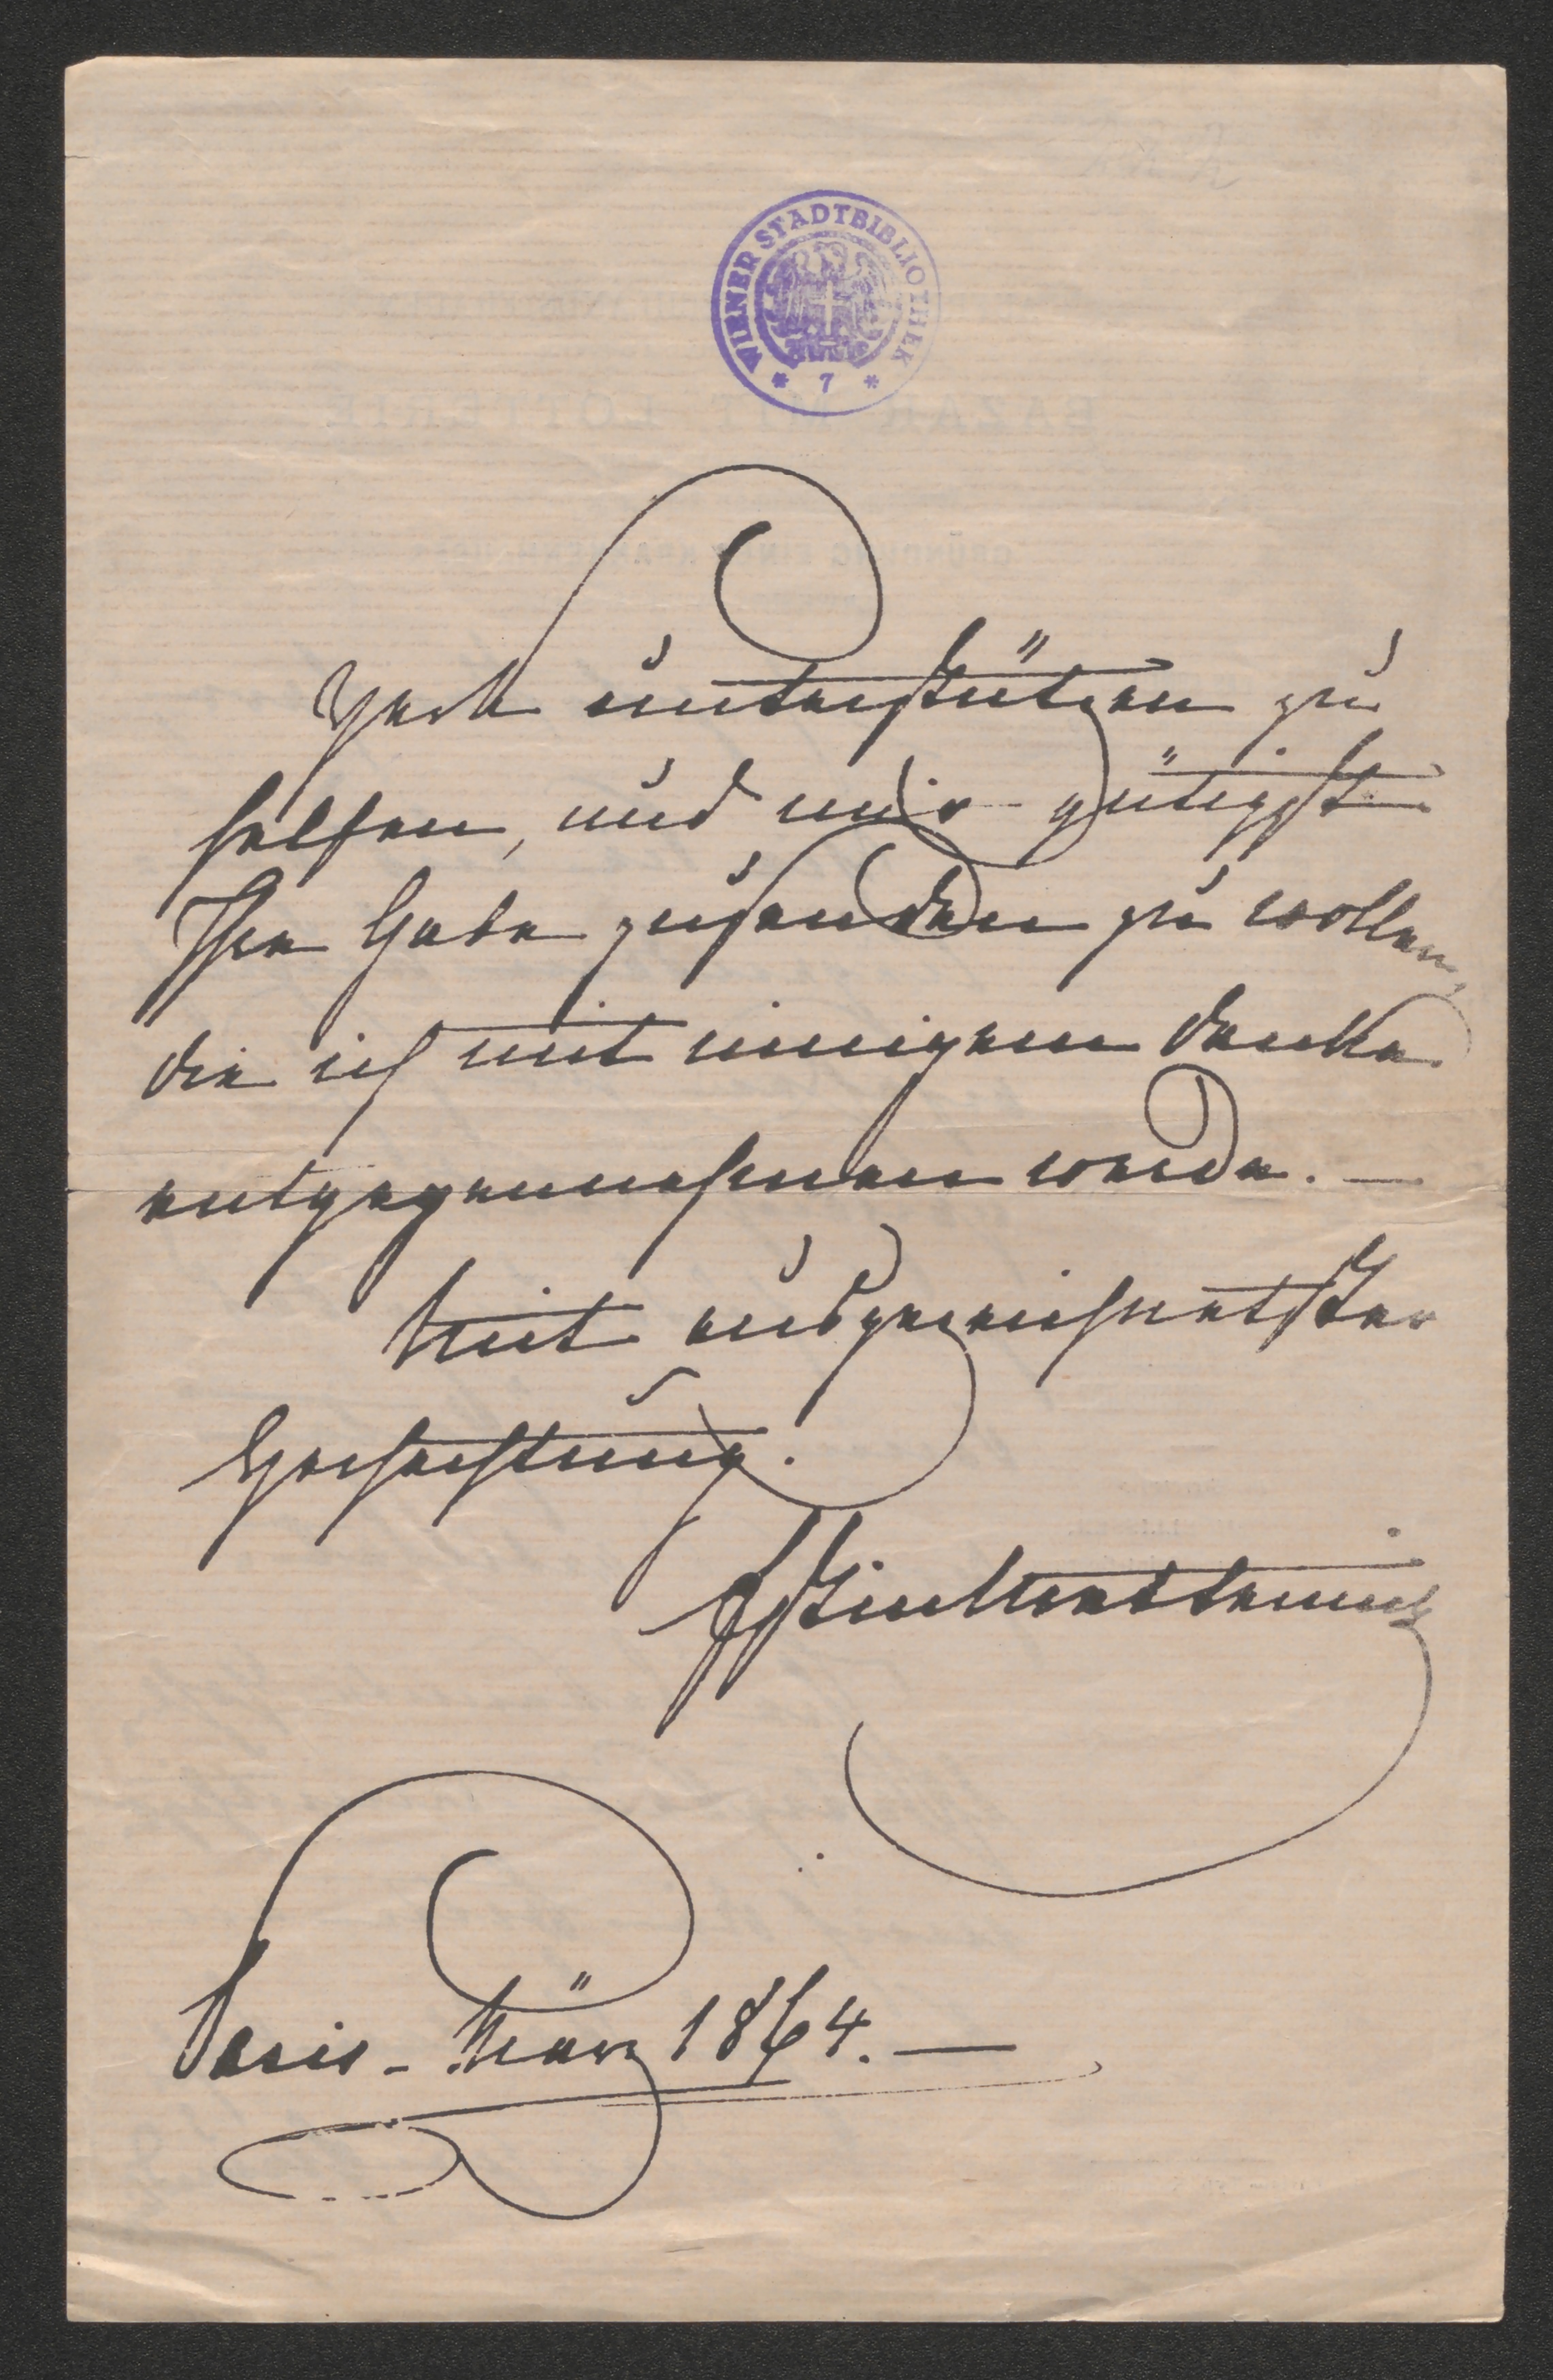 WIENER STADTBIBLIOTHEK
* 7 *
Werk unterstützen zu
helfen, und mir gütigst
Ihre Gabe zusenden zu wollen,
die ich mit innigem Danke
entgegennehmen werde. —
Mit ausgezeichnetster
Hochachtung.
Paris - März 1864. —